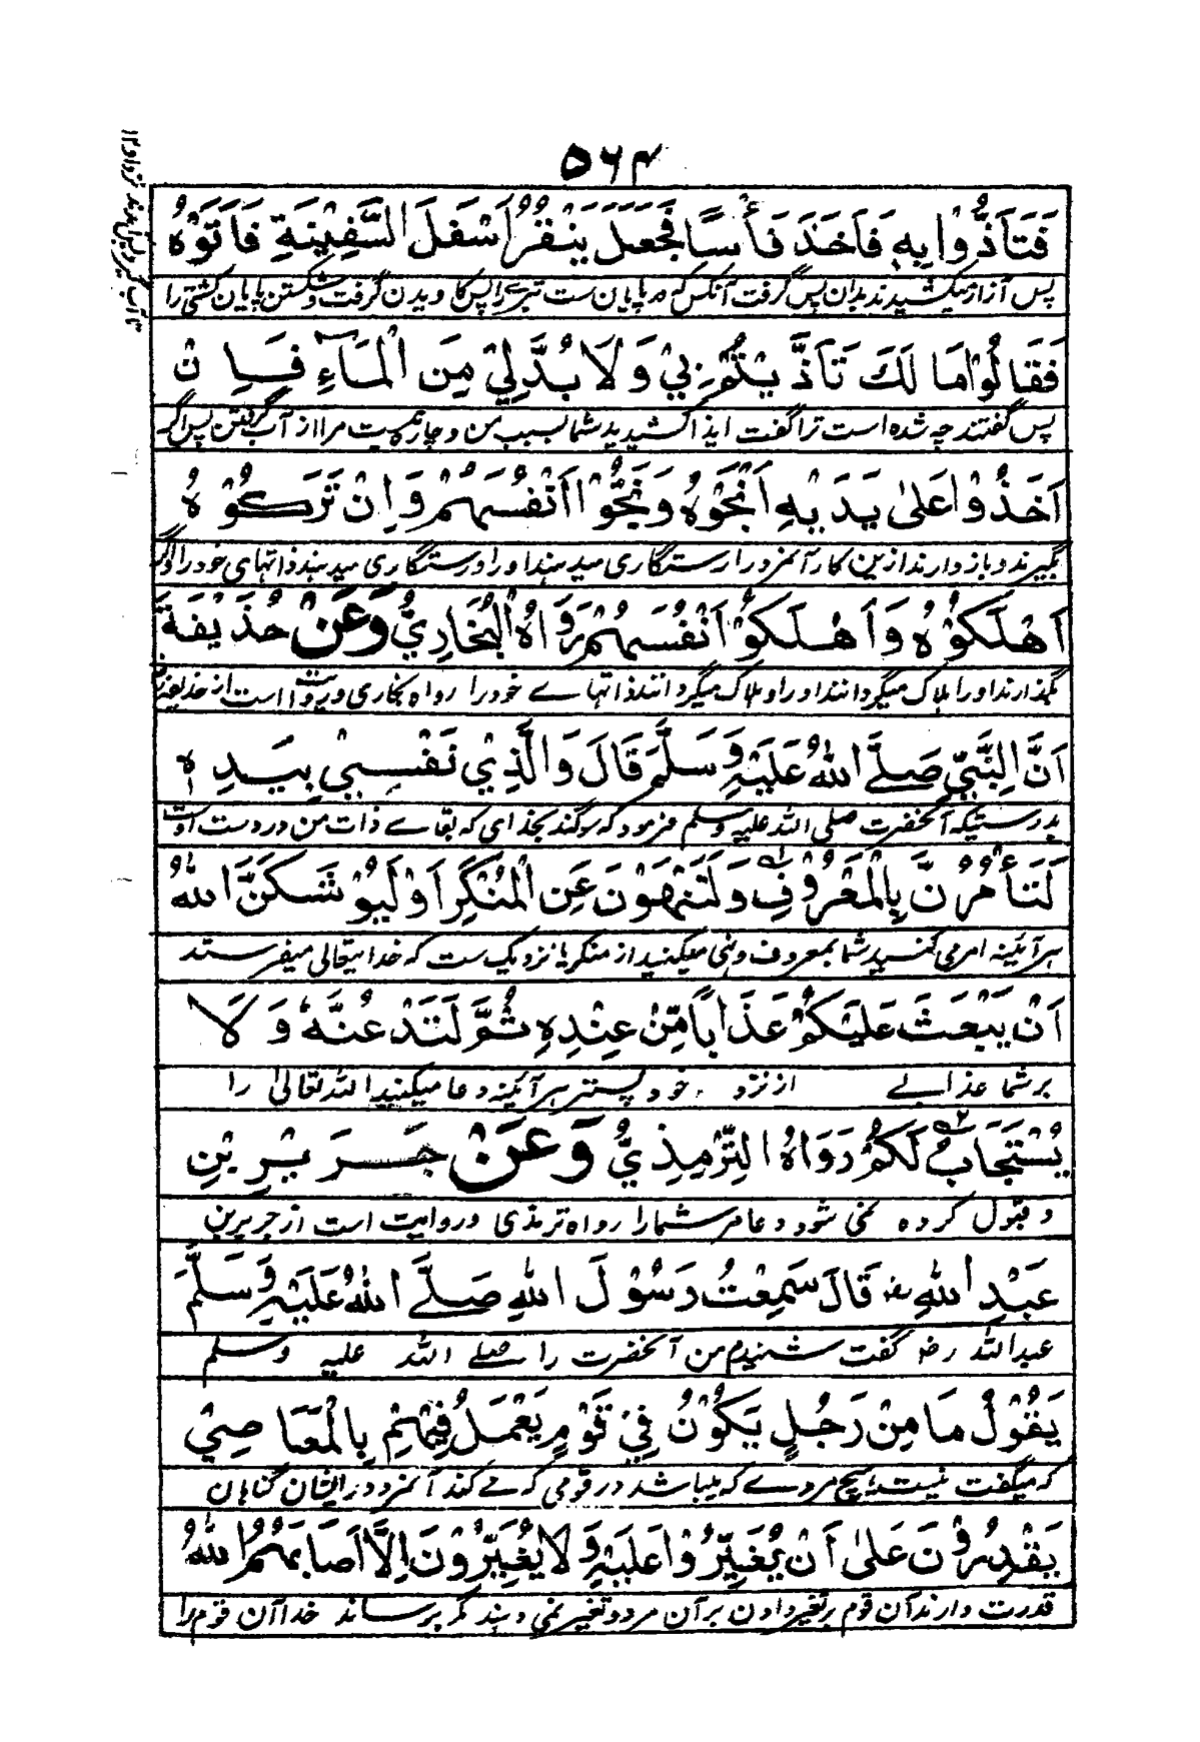 ۵۶۴
فَتَأَذَّوْا بِهٖ فَاَخَذَ فَأْسًا فَجَعَلَ يَنْقُرُ اَسْفَلَ السَّفِيْنَةِ فَاَتَوْهُ
پس آزار میکشیدند بدان پس گرفت آنکس که در پایان ست تبرے را پس کاویدن گرفت وشکستن پایان کشتی را
فَقَالُوْا مَا لَكَ تَاَذَّيْتُمْ بِيْ وَلَا بُدَّلِيْ مِنَ الْمَآءِ فَاِنْ
پس گفتند چه شده است ترا گفت ایذا کشیدید شما بسبب من و چاره نیست مرا از آب گرفتن پس اگر
اَخَذُوْا عَلىٰ يَدَيْهِ اَنْجَوْهُ وَنَجَّوْا اَنْفُسَهُمْ وَاِنْ تَرَكُوْهُ
بگیرند و باز دارند ازین کار آنمرد را رستگاری میدهند او را و رستگاری میدهند ذاتهای خود را و اگر
اَهْلَكُوْهُ وَاَهْلَكُوْا اَنْفُسَهُمْ رَوَاهُ الْبُخَارِيُّ وَعَنْ حُذَيْفَةَ
بگذارند او را هلاک میگردانند او را و هلاک میگردانند ذاتهاے خود را رواه بخاری و روایت است از حذیفه
اَنَّ النَّبِيَّ صَلَّے اللّٰهُ عَلَيْهِ وَسَلَّمَ قَالَ وَالَّذِيْ نَفْسِيْ بِيَدِهٖ
بدرستیکه آنحضرت صلی الله علیه وسلم فرمود که سوگند بخدای که بقاے ذات من در دست اوست
لَتَأْمُرُنَّ بِالْمَعْرُوْفِ وَلَتَنْهَوُنَ عَنِ الْمُنْكَرِ اَوْ لَيُوْشَكَنَّ اللّٰهُ
هر آئینه امر می کنید شما بمعروف و نهی میکنید از منکر یا نزدیک ست که خدا تعالی میفرستد
اَنْ يَبْعَثَ عَلَيْكُمْ عَذَابًا مِّنْ عِنْدِهٖ ثُمَّ لَتَدْعُنَّهُ وَلَا
بر شما عذابے از نزد خود پستر هر آئینه دعا میکنید الله تعالیٰ را
يُسْتَجَابُ لَكُمْ رَوَاهُ التِّرْمِذِيُّ وَعَنْ جَرِيْرِ بْنِ
و قبول کرده نمی شود دعا مر شما را رواه ترمذی و روایت است از جریر بن
عَبْدِ اللّٰهِ رضـ قَالَ سَمِعْتُ رَسُوْلَ اللّٰهِ صَلَّے اللّٰهُ عَلَيْهِ وَسَلَّمَ
عبدالله رضـ گفت شنیدم من آنحضرت را صلے الله علیه وسلم
يَقُوْلُ مَا مِنْ رَجُلٍ يَكُوْنُ فِيْ قَوْمٍ يَعْمَلُ فِيْهِمْ بِالْمَعَاصِيْ
که میگفت نیست هیچ مردے که میباشد در قومی که مے کند آنمرد در ایشان گناهان
يَقْدِرُوْنَ عَلىٰ اَنْ يُغَيِّرُوْا عَلَيْهِ وَلَا يُغَيِّرُوْنَ اِلَّا اَصَابَهُمُ اللّٰهُ
قدرت دارند آن قوم بر تغیر دادن بر آن مرد و تغیر نمی دهند مگر برساند خدا آن قوم را